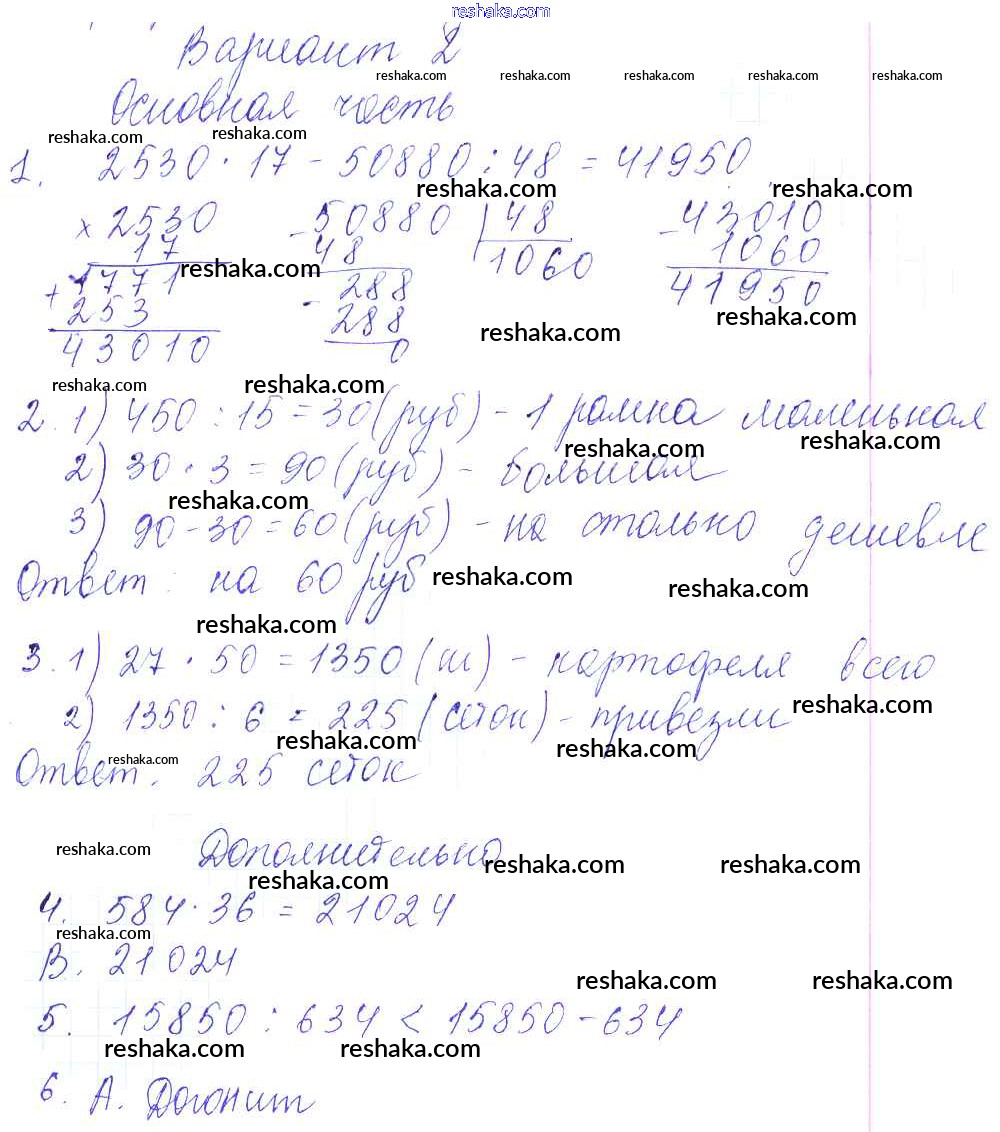 reshaka.com
Вариант 2
reshaka.com reshaka.com reshaka.com reshaka.com reshaka.com
Основная часть
reshaka.com reshaka.com
1. 2530 · 17 - 50880 : 48 = 41950
reshaka.com reshaka.com
× 2530 - 50880 | 48 - 43010
17 48 1060 1060
+ 1771 - 288 41950
reshaka.com reshaka.com
253 288
43010 0
reshaka.com
reshaka.com reshaka.com
2. 1) 450 : 15 = 30 (руб) - 1 рамка маленькая
reshaka.com reshaka.com
2) 30 · 3 = 90 (руб) - большая
reshaka.com
3) 90 - 30 = 60 (руб) - на столько дешевле
Ответ: на 60 руб
reshaka.com reshaka.com
reshaka.com
3. 1) 27 · 50 = 1350 (ш) - картофеля всего
2) 1350 : 6 = 225 (сеток) - привезли
reshaka.com
reshaka.com reshaka.com
Ответ: 225 сеток
reshaka.com
Дополнительно
reshaka.com reshaka.com reshaka.com
reshaka.com
4. 584 · 36 = 21024
reshaka.com
В. 21024
reshaka.com reshaka.com
5. 15850 : 634 < 15850 - 634
reshaka.com reshaka.com
6. А. Догонит